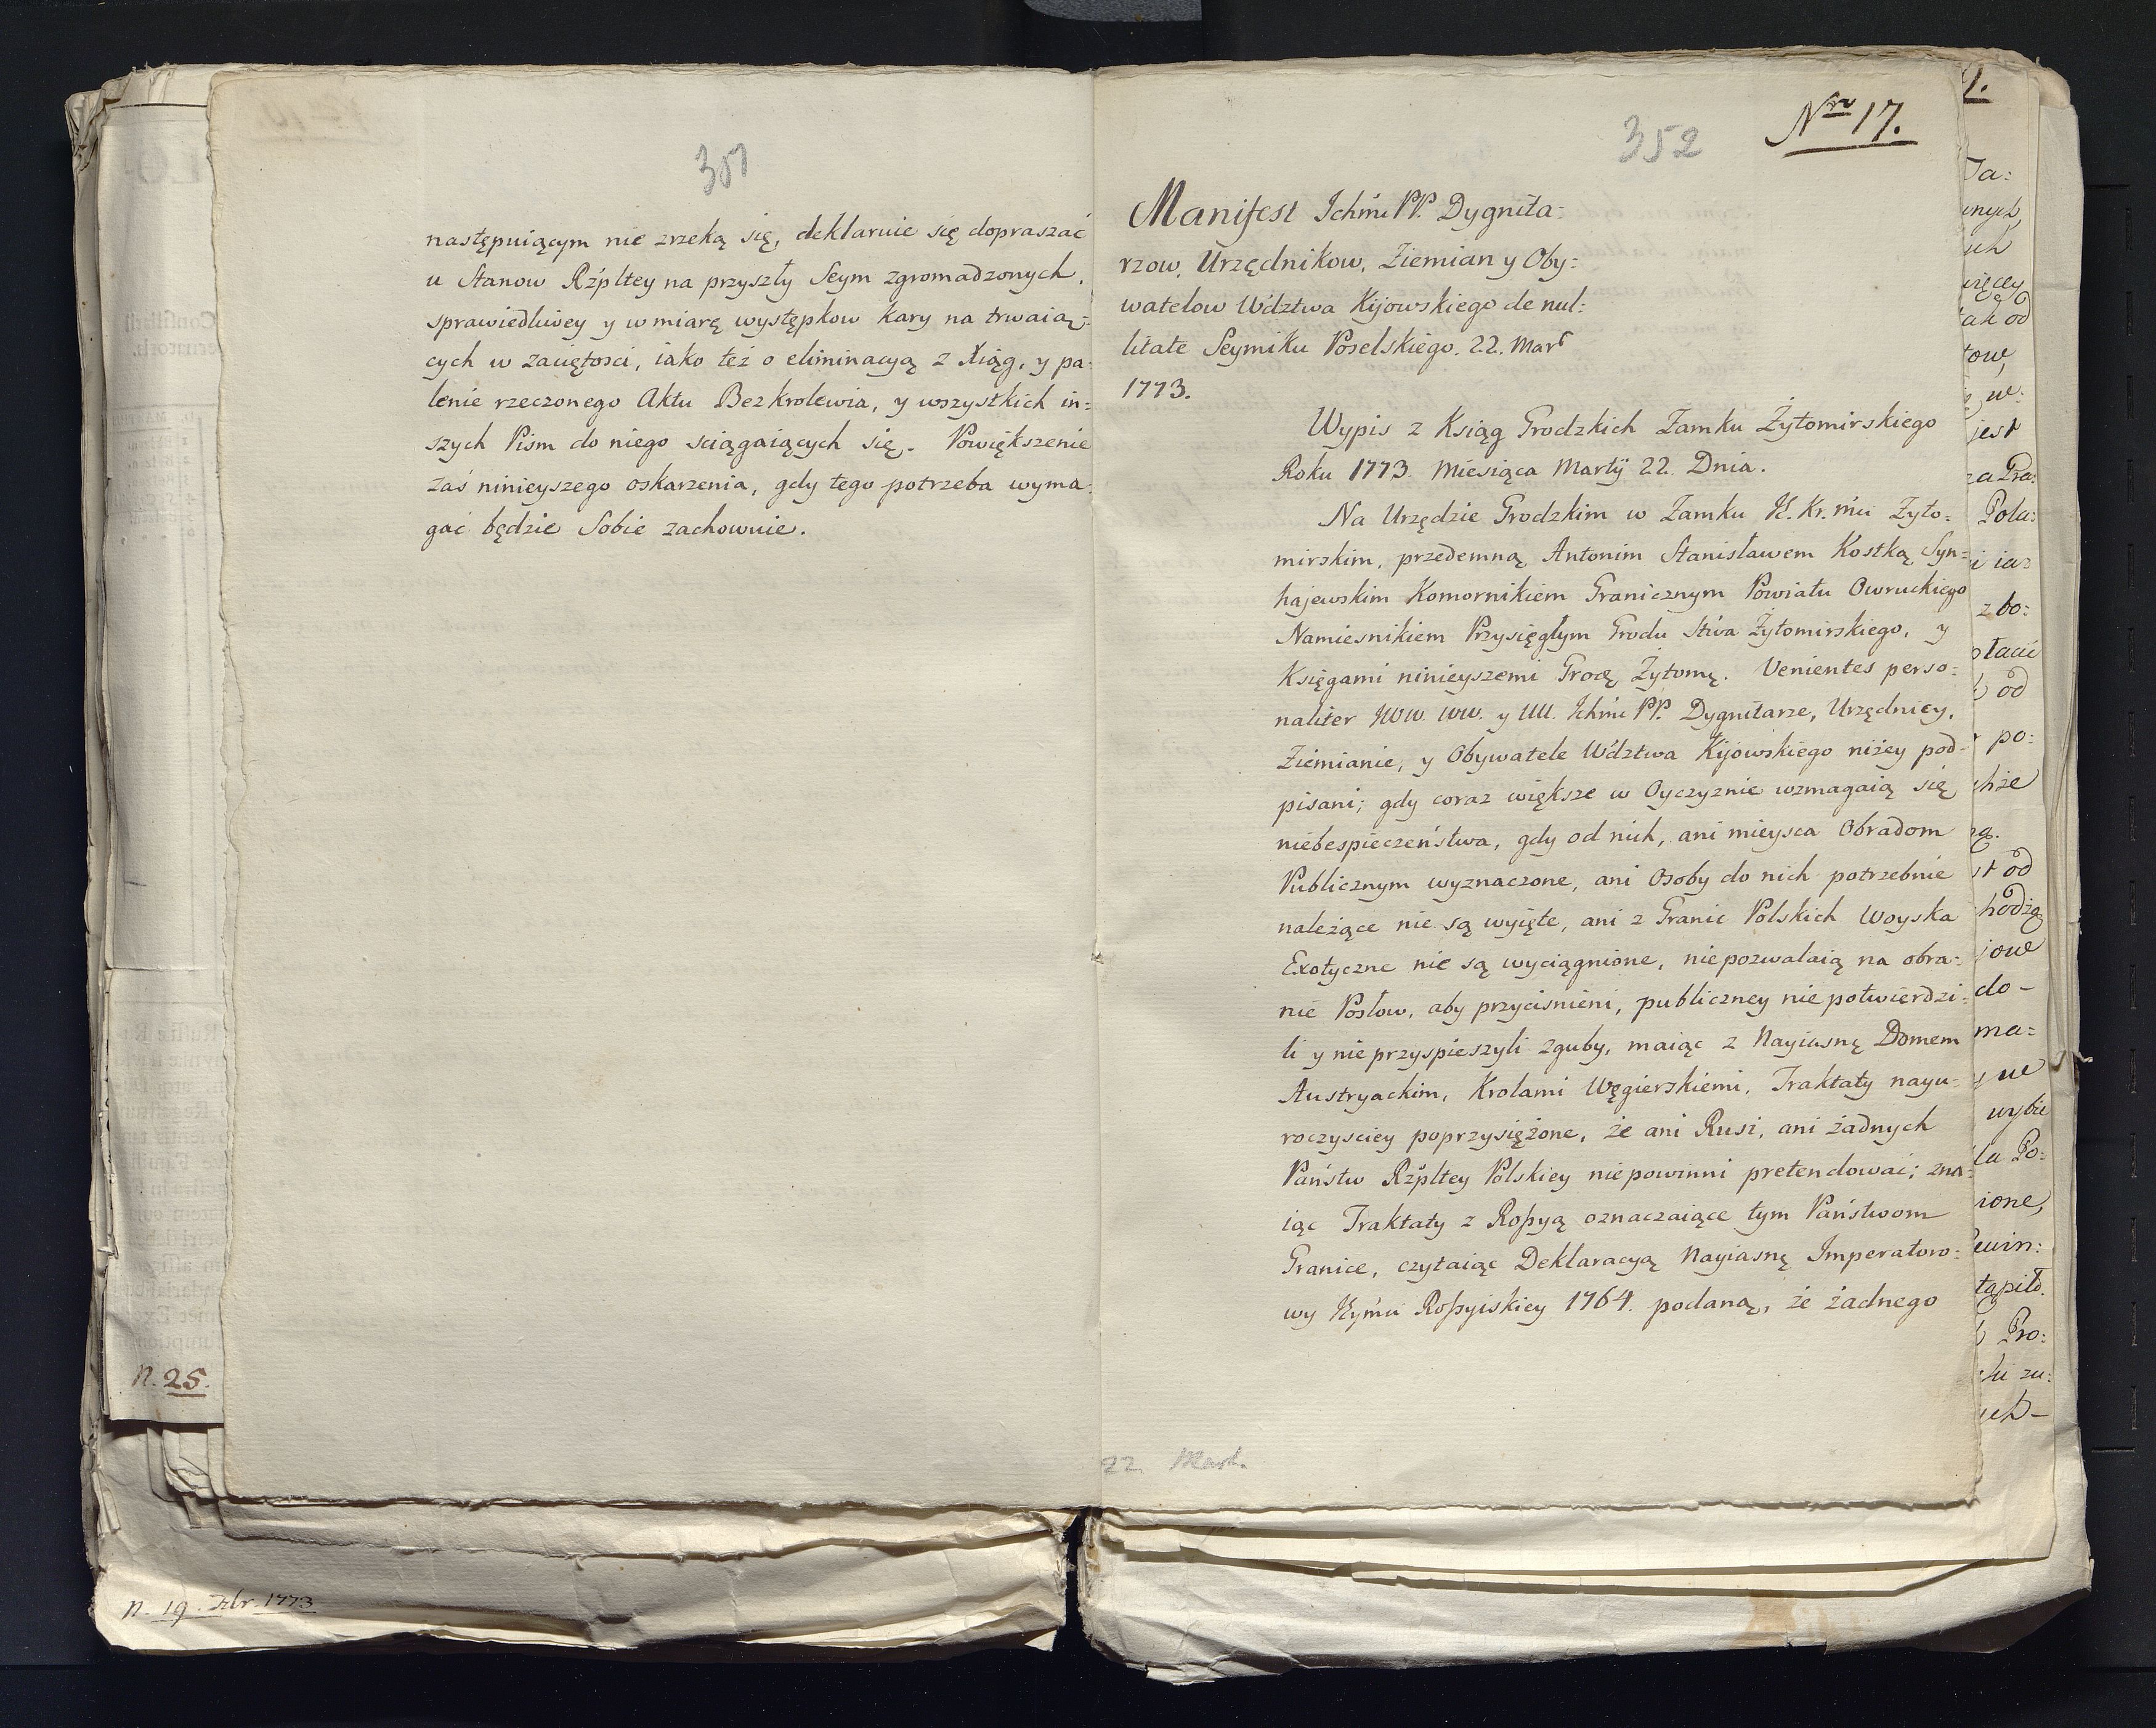 351
następuiącym nie zrzeką się, deklaruie się dopraszać
u Stanow Rzpltey na przyszły Seym zgromadzonych,
sprawiedliwey y w miarę występkow kary na trwaią:
cych w zawziętosci, iako też o eliminacyą z Xiąg, y pa:
lenie rzeczonego Aktu Bezkrolewia, y wszystkich in:
szych Pism do niego sciągaiących się. Powiększenie
zaś ninieyszego oskarzenia, gdy tego potrzeba wyma:
gać będzie Sobie zachowuie.
N. 25.
N. 19. Xbr. 1773
352
Nro 17.
Manifest Ichmć PP. Dygnita:
rzow, Urzędnikow, Ziemian y Oby:
watelow Wdztwa Kijowskiego de nul:
litate Seymiku Poselskiego. 22. Mar
1773.
Wypis z Ksiąg Grodzkich Zamku Żytomirskiego
Roku 1773 Miesiąca Martij 22. Dnia.
Na Urzędzie Grodzkim w Zamku J. Kr. mci Żyto:
mirskim, przedemną Antonim Stanisławem Kostką Syn:
hajewskim Komornikiem Granicznym Powiatu Owruckiego
Namiesnikiem Przysięgłym Grodu Stwa Żytomirskiego, y
Księgami ninieyszemi Grodz Żytomę. Venientes perso:
naliter JWW. WW. y UU. Ichmć PP. Dygnitarze, Urzędnicy,
Ziemianie, y Obywatele Wdztwa Kijowskiego niżey pod:
pisani; gdy coraz większe w Oyczyznie wzmagaią się
niebespieczeństwa, gdy od nich, ani mieysca Obradom
Publicznym wyznaczone, ani Osoby do nich potrzebnie
należące nie są wyięte, ani z Granic Polskich Woyska
Exotyczne nie są wyciągnione, niepozwalaią na obra:
nie Posłow, aby przycisnieni, publiczney nie potwierdzi:
li y nie przyspieszyli zguby, maiąc z Nayiasnę Domem
Austryackim, Krolami Węgierskiemi, Traktaty nayu:
roczysciey poprzysiężone, że ani Rusi, ani żadnych
Państw Rzpltey Polskiey niepowinni pretendować; zna:
iąc Traktaty z Rossyą oznaczaiące tym Państwom
Granice, czytaiąc Deklaracyą Nayiasnę Imperatoro:
wy Jeymci Rossyiskiey 1764. podaną, że żadnego
22. Mart.